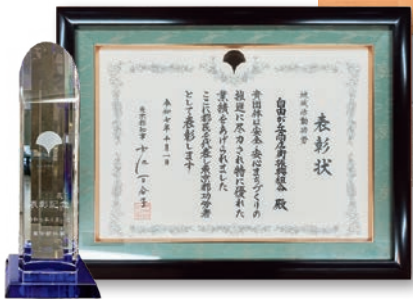 表彰状
地域活動功労
自由が丘商店街振興組合 殿
貴団体は安全・安心まちづくりの
推進に尽力され特に優れた
業績をあげられました
ここに都民を代表し東京都功労者
として表彰します
令和七年十月一日
東京都知事 小池百合子
表彰記念